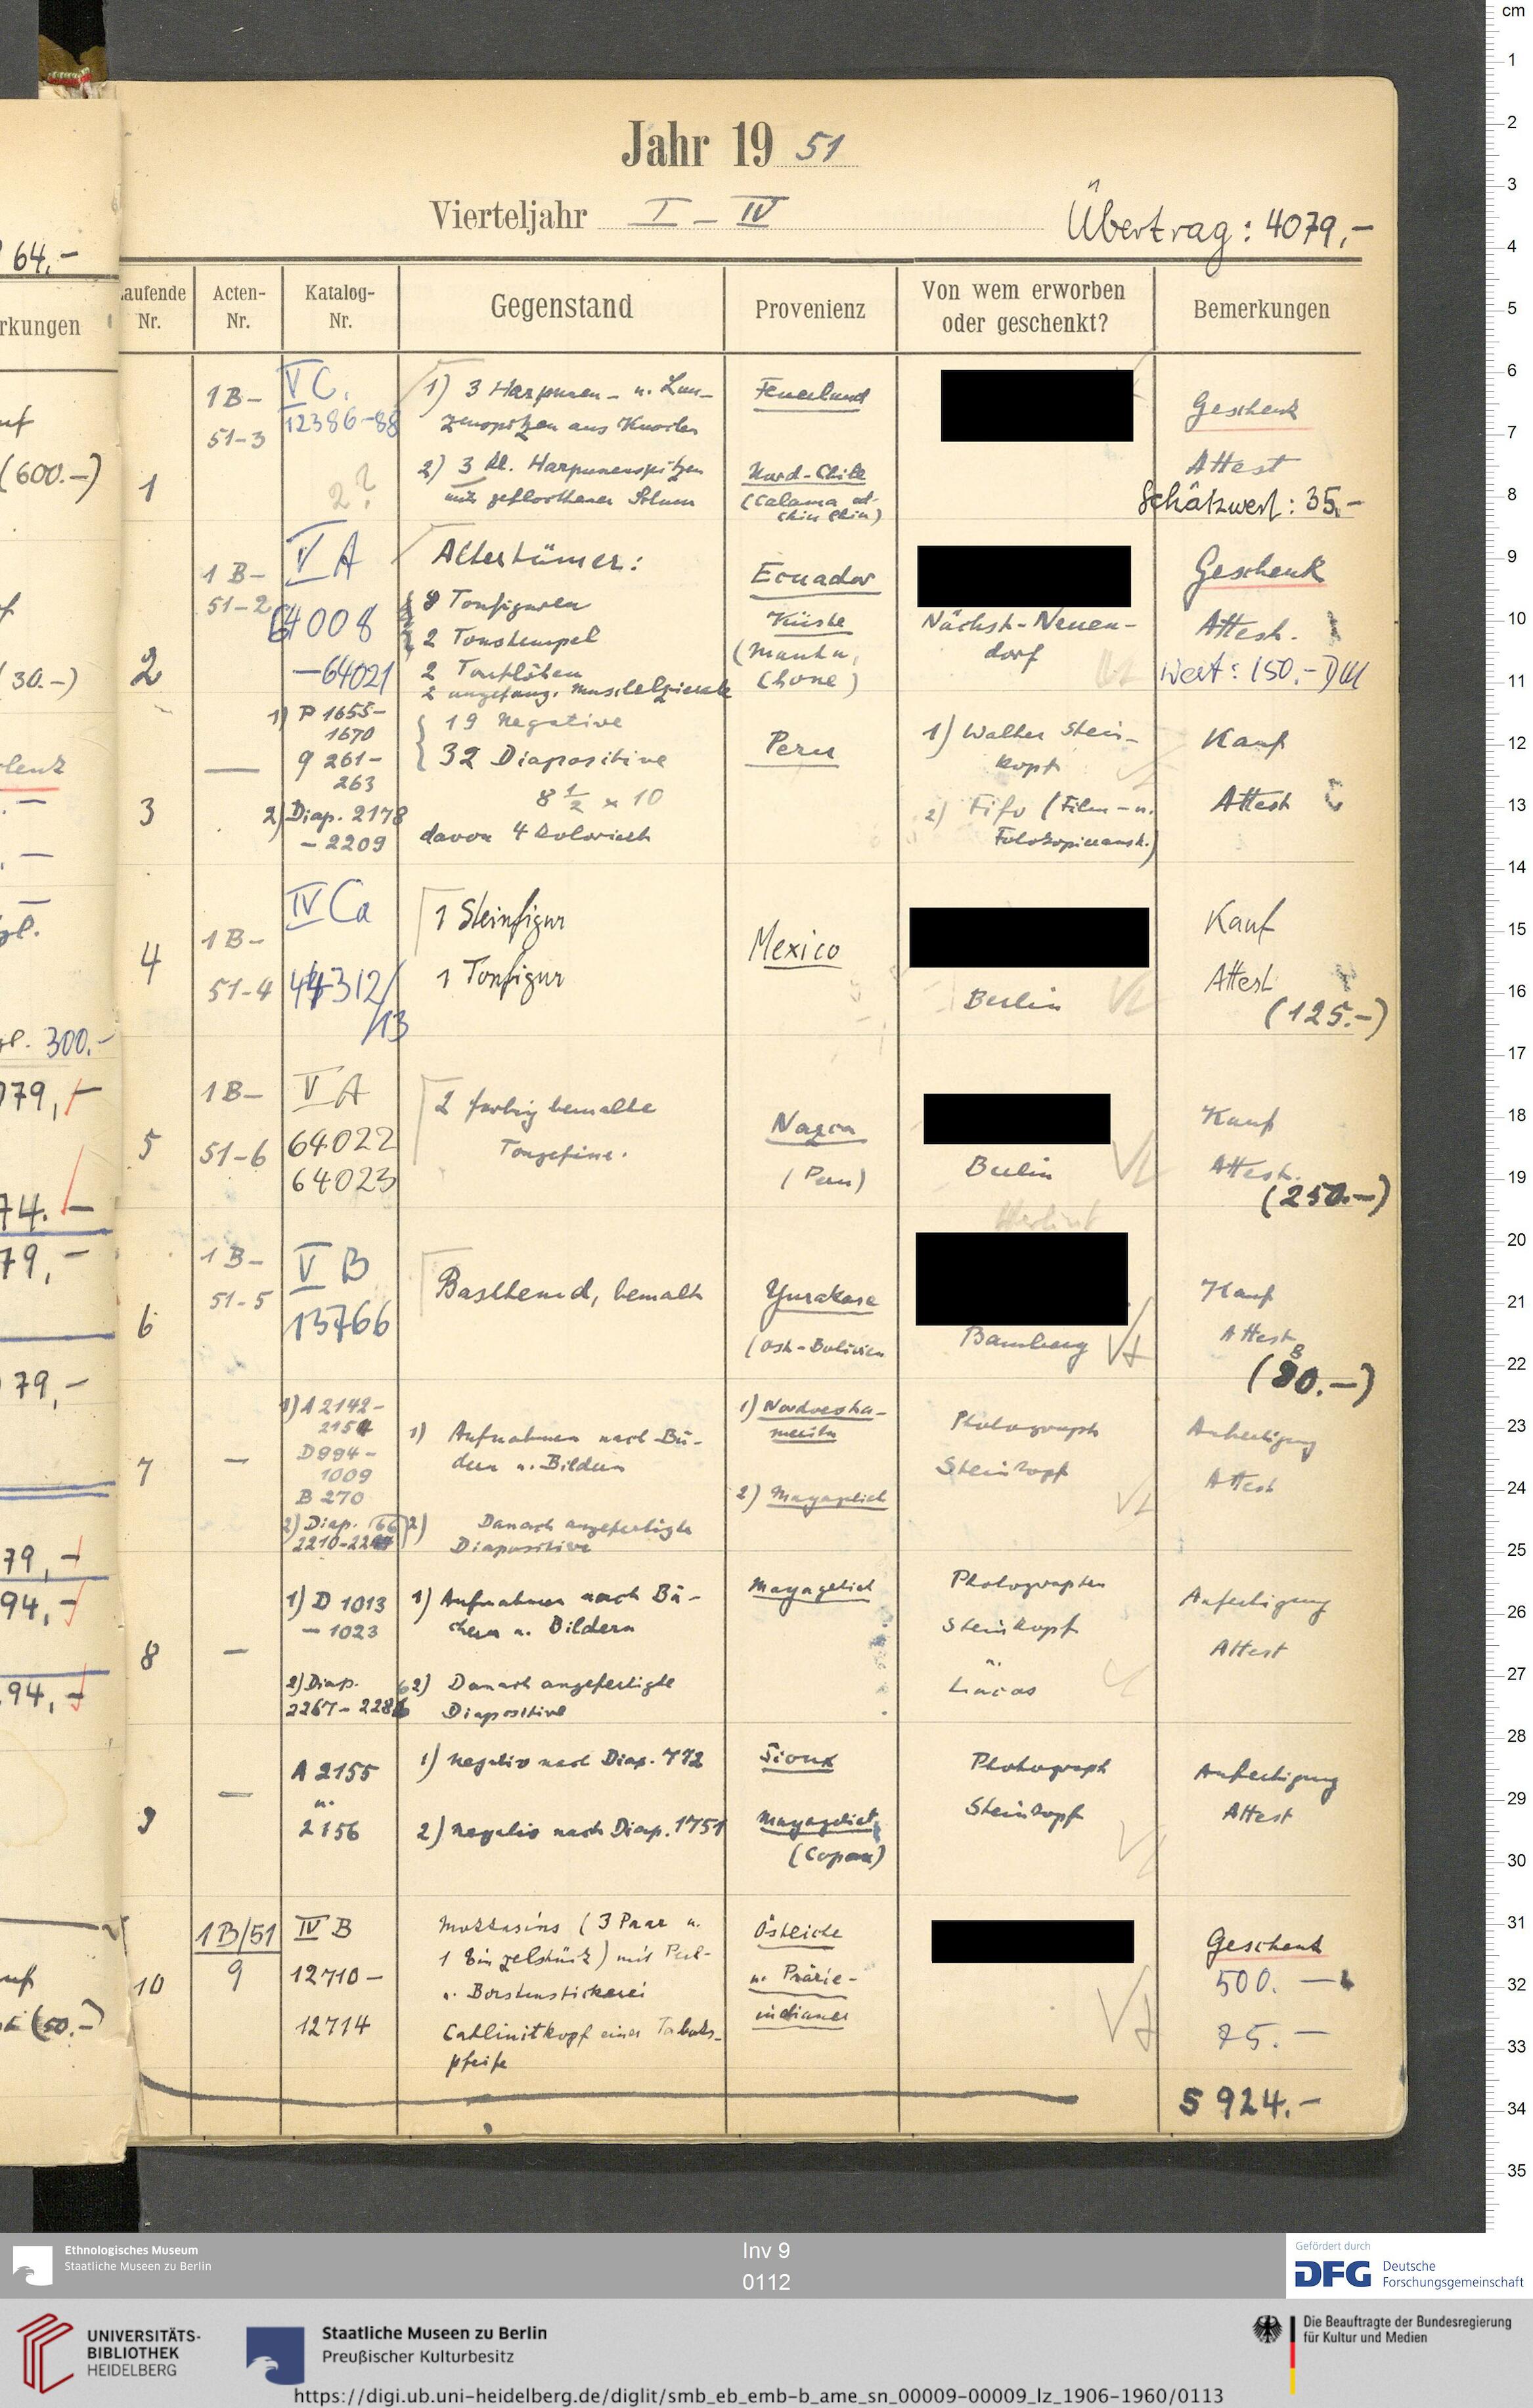 Jahr 19 51
Vierteljahr I – IV
Übertrag: 4079,-
64.-
rkungen
Laufende Nr.
Acten-Nr.
Katalog-Nr.
Gegenstand
Provenienz
Von wem erworben oder geschenkt?
Bemerkungen
(600.-)
30.-)
300.-
79,-
74.-
79,-
79,-
79,-
94,-
94,-
(50.-)
1
1B-
51-3
V C.
12386-88
2?
1) 3 Harpunen- u. Lan-
zenspitzen aus Knochen
2) 3 kl. Harpunenspitzen
mit geflochtener Schnur
Feuerland
Nord-Chile
(Calama od.
Chiu Chiu)
Geschenk
Attest
Schätzwert: 35.-
2
1 B-
51-2
V A
64008
-64021
Altertümer:
8 Tonfiguren
2 Tonstempel
2 Tonflöten
2 angefang. Muschelzierate
Ecuador
Küste
(Manta,
Chone)
Nächst-Neuen-
dorf
Geschenk
Attest.
Wert: 150.- DM
3
—
1) P 1655-
1670
9 261-
263
2) Diap. 2178
- 2209
19 Negative
32 Diapositive
8 1/2 x 10
davon 4 koloriert
Peru
1) Walter Stein-
kopf
2) Fifo (Film- u.
Fotokopieranst.)
Kauf
Attest
4
1 B-
51-4
IV Ca
44312/
/13
1 Steinfigur
1 Tonfigur
Mexico
Berlin
Kauf
Attest
(125.-)
5
1 B-
51-6
V A
64022
64023
2 farbig bemalte
Tongefäße.
Nazca
(Peru)
Berlin
Kauf
Attest.
(250.-)
6
1 B-
51-5
V B
13766
Basthemd, bemalt
Yurakare
(Ost-Bolivien
Bamberg
Kauf
Attest
(80.-)
7
-
1) A 2142-
2154
D 994-
1009
B 270
2) Diap.
2210-
1) Aufnahmen nach Bü-
chern u. Bildern
2) Danach angefertigte
Diapositive
1) Nordwestha-
merika
2) Mayagebiet
Photograph
Steinkopf
Anfertigung
Attest
8
-
1) D 1013
- 1023
2) Diap.
2267-2286
1) Aufnahmen nach Bü-
chern u. Bildern
2) Danach angefertigte
Diapositive
Mayagebiet
Photographen
Steinkopf
u.
Lincas
Anfertigung
Attest
9
-
A 2155
u.
2156
1) Negativ nach Diap. 772
2) Negativ nach Diap. 1751
Sioux
Mayagebiet
(Copan)
Photograph
Steinkopf
Anfertigung
Attest
10
1B/51
9
IV B
12710-
12714
Mokkasins (3 Paar u.
1 Einzelstück) mit Perl-
u. Borstenstickerei
Catlinitkopf einer Tabaks-
pfeife
Östliche
u. Prärie-
indianer
Geschenk
500. -
75. -
5 924.-
cm
1
2
3
4
5
6
7
8
9
10
11
12
13
14
15
16
17
18
19
20
21
22
23
24
25
26
27
28
29
30
31
32
33
34
35
Ethnologisches Museum
Staatliche Museen zu Berlin
Inv 9
0112
Gefördert durch
DFG Deutsche
Forschungsgemeinschaft
UNIVERSITÄTS-
BIBLIOTHEK
HEIDELBERG
Staatliche Museen zu Berlin
Preußischer Kulturbesitz
Die Beauftragte der Bundesregierung
für Kultur und Medien
https://digi.ub.uni-heidelberg.de/diglit/smb_eb_emb-b_ame_sn_00009-00009_lz_1906-1960/0113